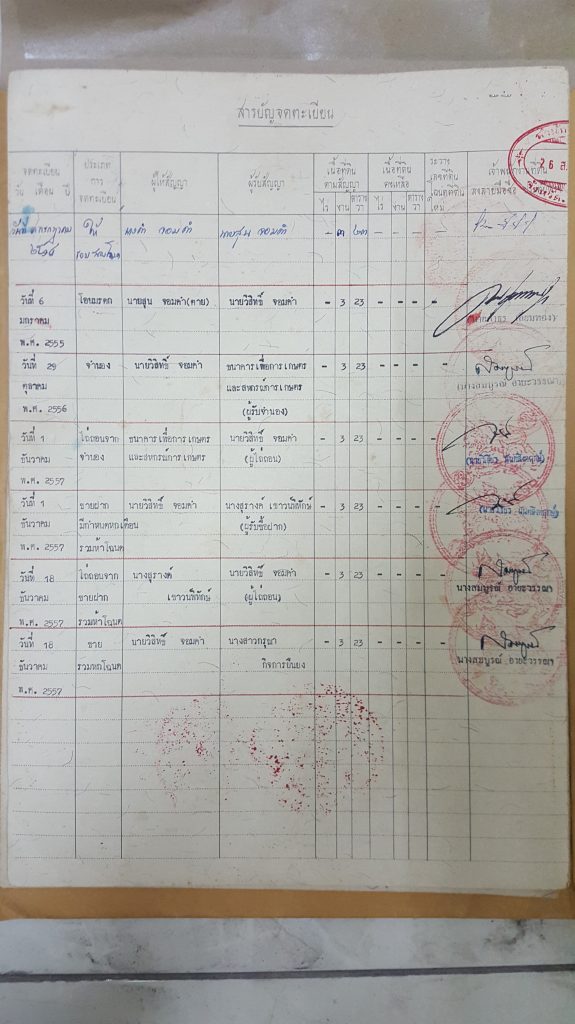 สารบัญจดทะเบียน
จดทะเบียน ประเภท ผู้ให้สัญญา ผู้รับสัญญา เนื้อที่ดิน เนื้อที่ดิน ระวาง เจ้าพนักงานที่ดิน
วัน เดือน ปี การ ตามสัญญา คงเหลือ เลขที่ดิน ลงลายมือชื่อ
จดทะเบียน ไร่ งาน ตารางวา ไร่ งาน ตารางวา โฉนดที่ดิน ใหม่
ให้ นางคำ จอมคำ นายสุน จอมคำ - ๓ ๒๓ - - - -
๒๕๑๕
วันที่ 6 โอนมรดก นายสุน จอมคำ(ตาย) นายวิสิทธิ์ จอมคำ - 3 23 - - - -
มกราคม
พ.ศ. 2555
วันที่ 29 จำนอง นายวิสิทธิ์ จอมคำ ธนาคารเพื่อการเกษตร - 3 23 - - - -
ตุลาคม และสหกรณ์การเกษตร (นางสมบูรณ์ อายะวรรณา)
พ.ศ. 2556 (ผู้รับจำนอง)
วันที่ 1 ไถ่ถอนจาก ธนาคารเพื่อการเกษตร นายวิสิทธิ์ จอมคำ - 3 23 - - - -
ธันวาคม จำนอง และสหกรณ์การเกษตร (ผู้ไถ่ถอน)
พ.ศ. 2557
วันที่ 1 ขายฝาก นายวิสิทธิ์ จอมคำ นางสุรางค์ เชาวนพิทักษ์ - 3 23 - - - -
ธันวาคม มีกำหนดหกเดือน (ผู้รับซื้อฝาก)
พ.ศ. 2557 รวมห้าโฉนด
วันที่ 18 ไถ่ถอนจาก นางสุรางค์ นายวิสิทธิ์ จอมคำ - 3 23 - - - -
ธันวาคม ขายฝาก เชาวนพิทักษ์ (ผู้ไถ่ถอน) นางสมบูรณ์ อายะวรรณา
พ.ศ. 2557 รวมห้าโฉนด
วันที่ 18 ขาย นายวิสิทธิ์ จอมคำ นางสาวกรุณา - 3 23 - - - -
ธันวาคม รวมหกโฉนด กิจการยืนยง นางสมบูรณ์ อายะวรรณา
พ.ศ. 2557